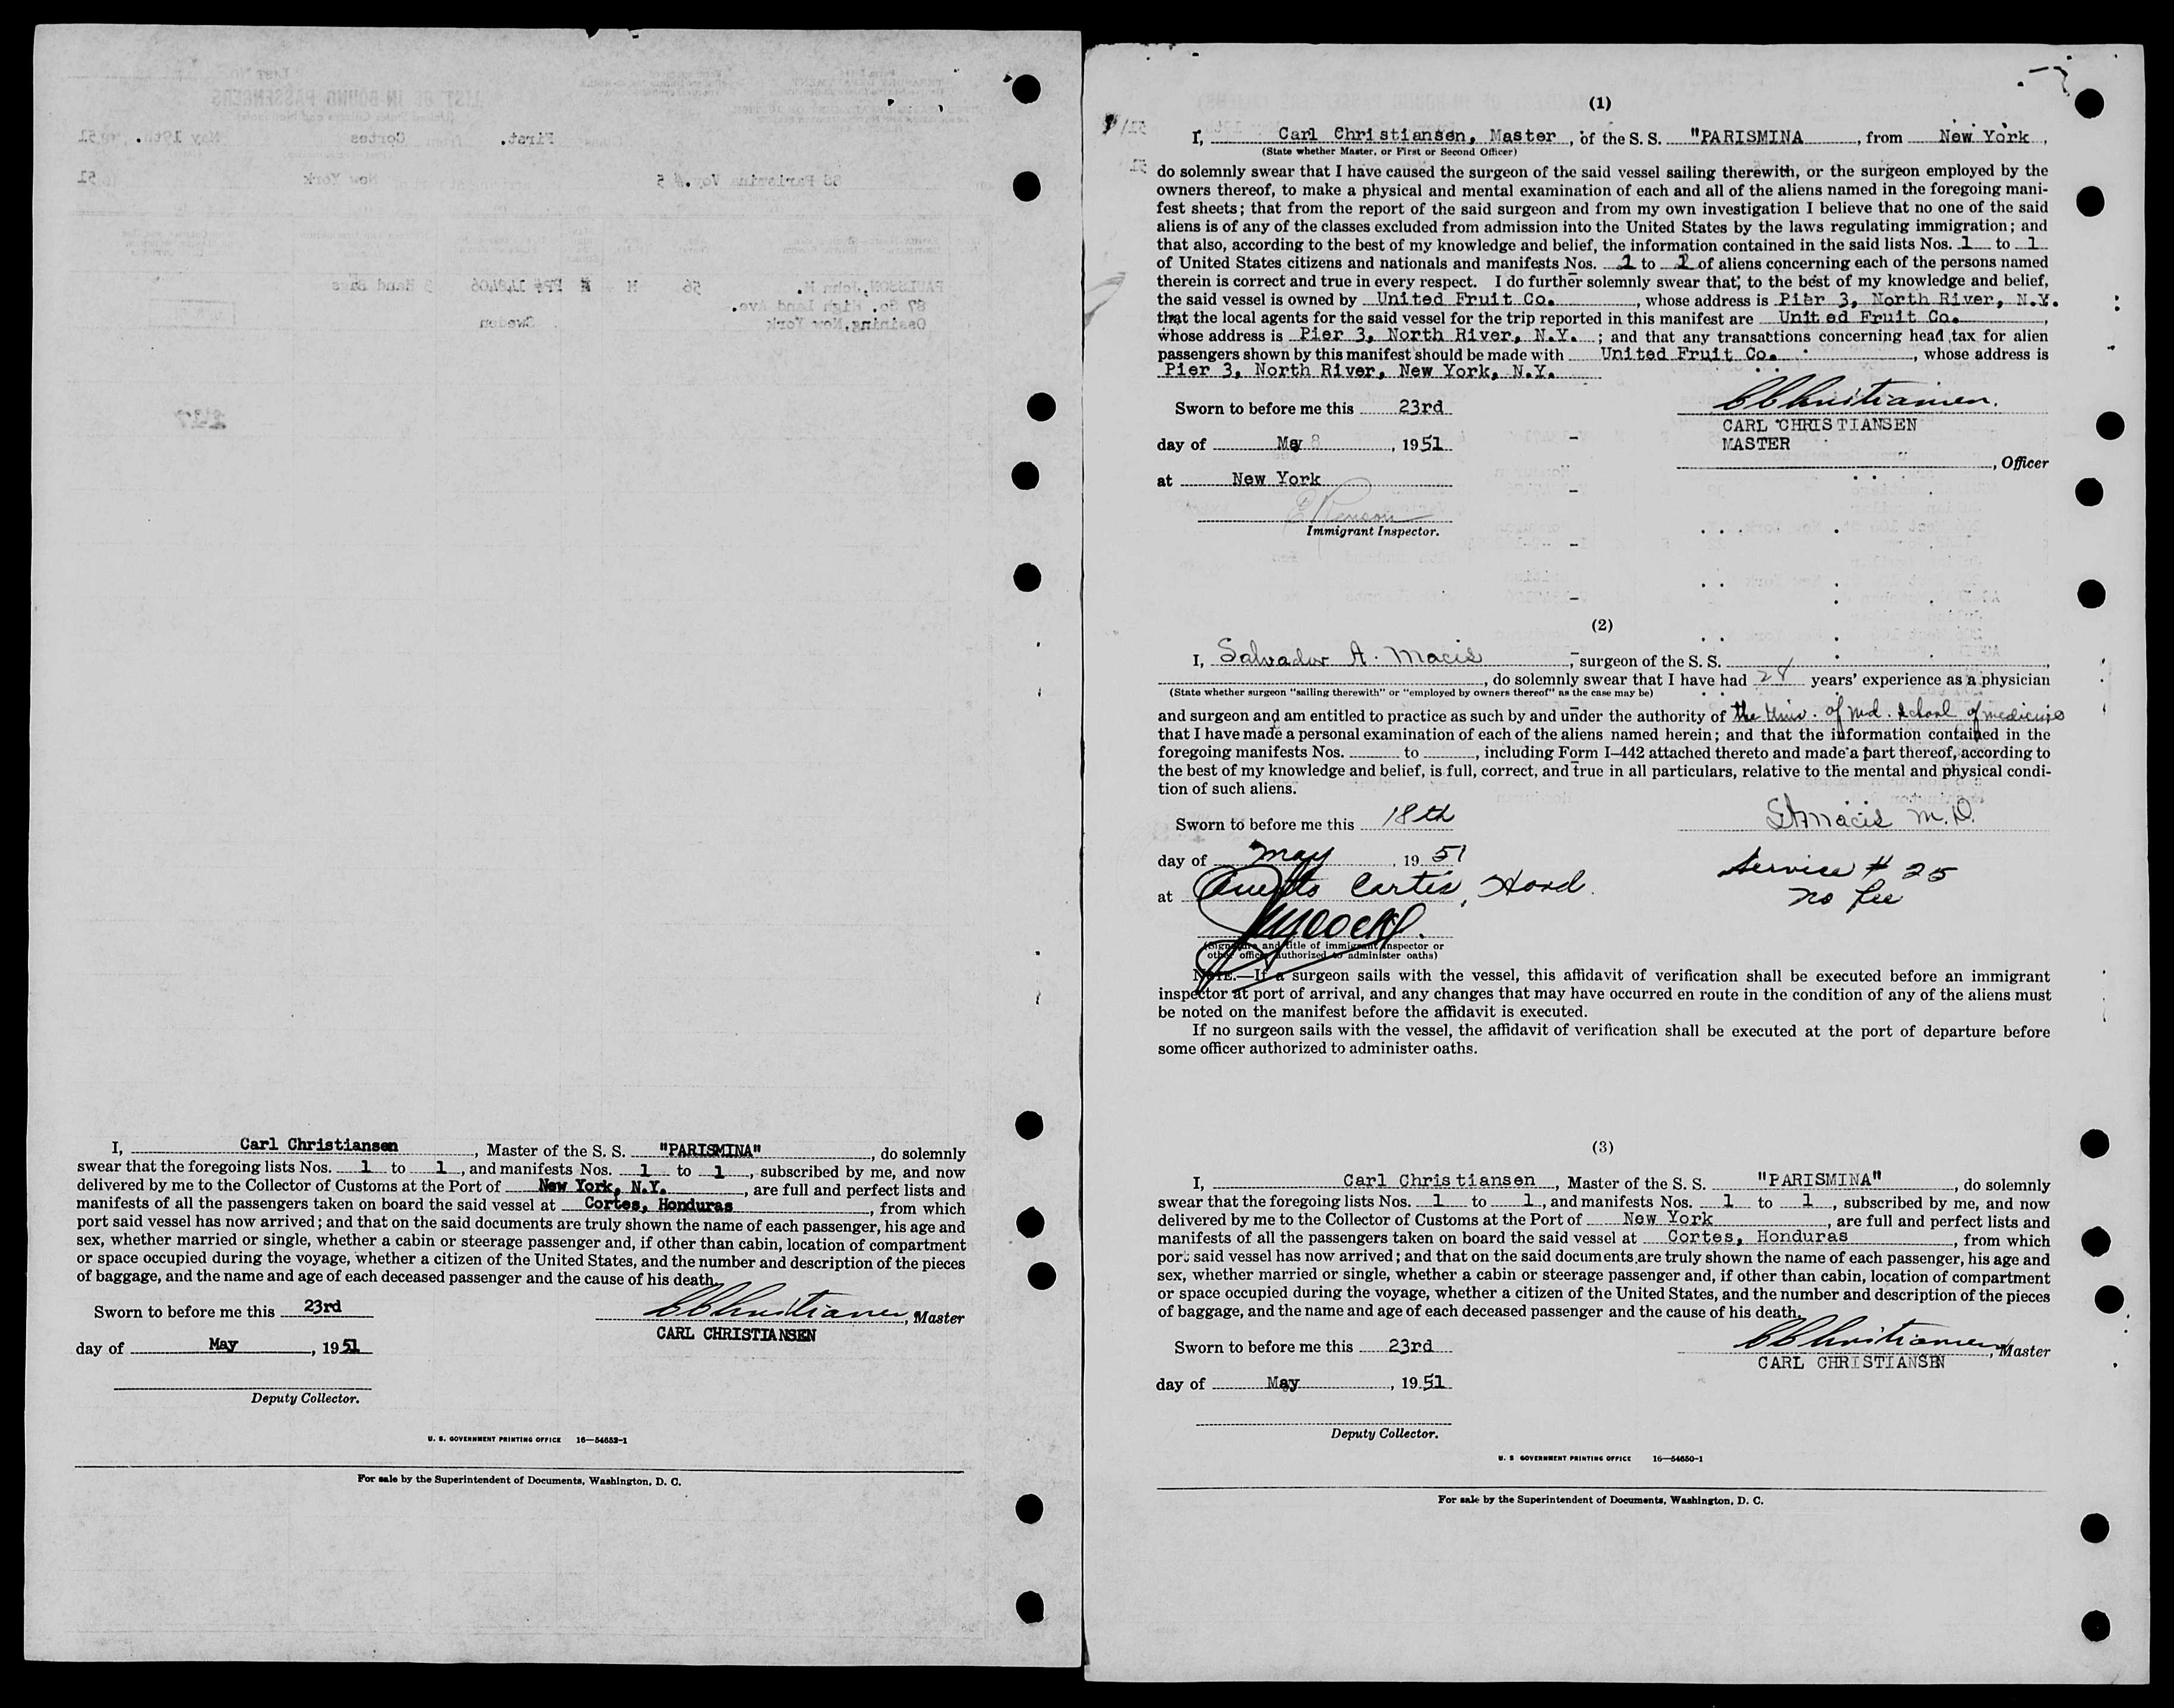 LIST OF IN-BOUND PASSENGERS
First.
Cortes
May 19th.
51
SS Parismina Voy.# 5
New York
51
PAULSON, John M.
56
M
Hand Bags
87 So. High Land Ave.
Ossining, New York
Sweden
I, Carl Christiansen, Master of the S. S. "PARISMINA", do solemnly
swear that the foregoing lists Nos. 1 to 1, and manifests Nos. 1 to 1, subscribed by me, and now
delivered by me to the Collector of Customs at the Port of New York, N.Y., are full and perfect lists and
manifests of all the passengers taken on board the said vessel at Cortes, Honduras, from which
port said vessel has now arrived; and that on the said documents are truly shown the name of each passenger, his age and
sex, whether married or single, whether a cabin or steerage passenger and, if other than cabin, location of compartment
or space occupied during the voyage, whether a citizen of the United States, and the number and description of the pieces
of baggage, and the name and age of each deceased passenger and the cause of his death.
Sworn to before me this 23rd
, Master
CARL CHRISTIANSEN
day of May, 1951
Deputy Collector.
U. S. GOVERNMENT PRINTING OFFICE 16—54652-1
For sale by the Superintendent of Documents, Washington, D. C.
(1)
I, Carl Christiansen, Master, of the S. S. "PARISMINA, from New York,
(State whether Master, or First or Second Officer)
do solemnly swear that I have caused the surgeon of the said vessel sailing therewith, or the surgeon employed by the
owners thereof, to make a physical and mental examination of each and all of the aliens named in the foregoing mani-
fest sheets; that from the report of the said surgeon and from my own investigation I believe that no one of the said
aliens is of any of the classes excluded from admission into the United States by the laws regulating immigration; and
that also, according to the best of my knowledge and belief, the information contained in the said lists Nos. 1 to 1
of United States citizens and nationals and manifests Nos. 1 to 1 of aliens concerning each of the persons named
therein is correct and true in every respect. I do further solemnly swear that, to the best of my knowledge and belief,
the said vessel is owned by United Fruit Co., whose address is Pier 3, North River, N.Y.
that the local agents for the said vessel for the trip reported in this manifest are United Fruit Co.,
whose address is Pier 3, North River, N.Y.; and that any transactions concerning head tax for alien
passengers shown by this manifest should be made with United Fruit Co., whose address is
Pier 3, North River, New York, N.Y.
Sworn to before me this 23rd
CChristiansen.
CARL CHRISTIANSEN
day of May, 1951
MASTER
, Officer
at New York
Immigrant Inspector.
(2)
I, Salvador A. Macis, surgeon of the S. S.
, do solemnly swear that I have had 28 years' experience as a physician
(State whether surgeon "sailing therewith" or "employed by owners thereof" as the case may be)
and surgeon and am entitled to practice as such by and under the authority of the Univ. of Md. School of medicine
that I have made a personal examination of each of the aliens named herein; and that the information contained in the
foregoing manifests Nos. to , including Form I–442 attached thereto and made a part thereof, according to
the best of my knowledge and belief, is full, correct, and true in all particulars, relative to the mental and physical condi-
tion of such aliens.
Sworn to before me this 18th
SAMacis M.D.
day of May, 19 51
Service # 25
at Puerto Cortés, Hond.
No fee
(Signature and title of immigrant inspector or
other officer authorized to administer oaths)
NOTE.—If a surgeon sails with the vessel, this affidavit of verification shall be executed before an immigrant
inspector at port of arrival, and any changes that may have occurred en route in the condition of any of the aliens must
be noted on the manifest before the affidavit is executed.
If no surgeon sails with the vessel, the affidavit of verification shall be executed at the port of departure before
some officer authorized to administer oaths.
(3)
I, Carl Christiansen, Master of the S. S. "PARISMINA", do solemnly
swear that the foregoing lists Nos. 1 to 1, and manifests Nos. 1 to 1, subscribed by me, and now
delivered by me to the Collector of Customs at the Port of New York, are full and perfect lists and
manifests of all the passengers taken on board the said vessel at Cortes, Honduras, from which
port said vessel has now arrived; and that on the said documents are truly shown the name of each passenger, his age and
sex, whether married or single, whether a cabin or steerage passenger and, if other than cabin, location of compartment
or space occupied during the voyage, whether a citizen of the United States, and the number and description of the pieces
of baggage, and the name and age of each deceased passenger and the cause of his death.
Sworn to before me this 23rd
CChristiansen, Master
CARL CHRISTIANSEN
day of May, 19 51
Deputy Collector.
U. S GOVERNMENT PRINTING OFFICE 16—54650-1
For sale by the Superintendent of Documents, Washington, D. C.